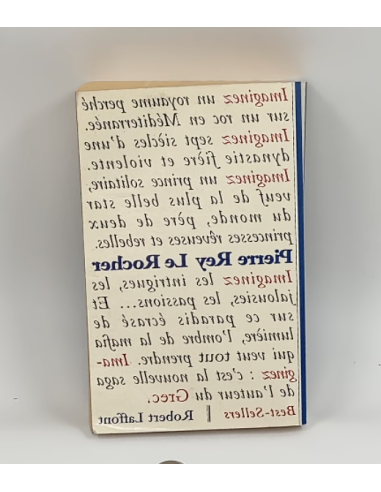 Imaginez un royaume perché
sur un roc en Méditerranée.
Imaginez sept siècles d'une
dynastie fière et violente.
Imaginez un prince solitaire,
veuf de la plus belle star
du monde, père de deux
princesses rêveuses et rebelles.
Pierre Rey Le Rocher
Imaginez les intrigues, les
jalousies, les passions... Et
sur ce paradis écrasé de
lumière, l'ombre de la mafia
qui veut tout prendre. Ima-
ginez : c'est la nouvelle saga
de l'auteur du Grec.
Best-Sellers | Robert Laffont